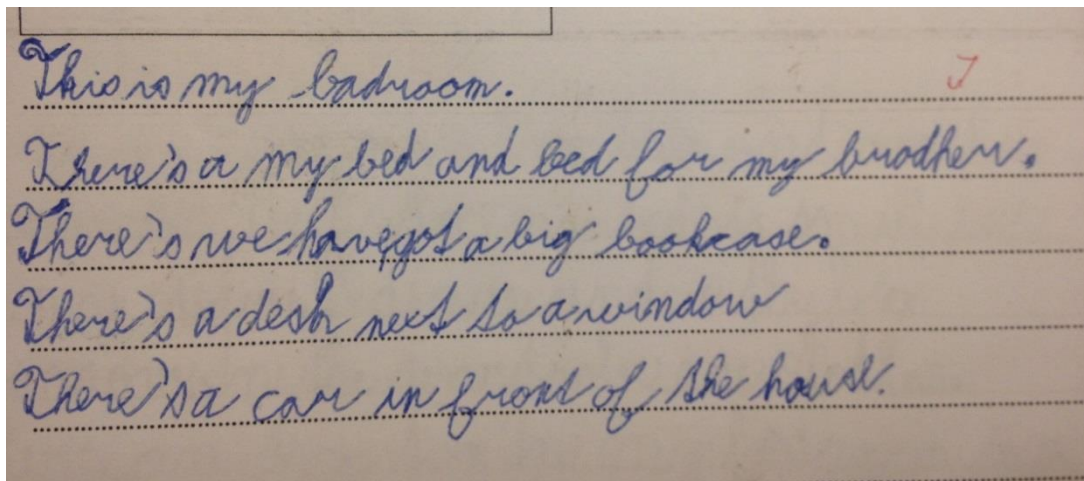 This is my badroom.
There's a my bed and bed for my brodher.
There's we have got a big bookcase.
There's a desk next to a window
There's a car in front of the house.